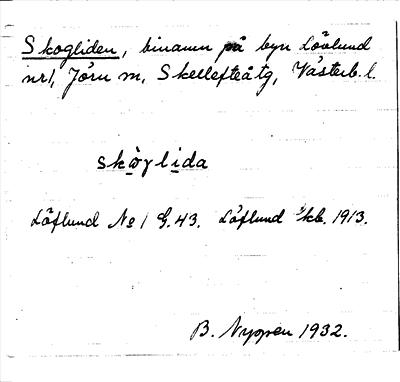 Skogliden, binamn på byn Lövlund
nr 1, Jörn sn, Skellefteå tg, Västerb. l.
skòγlida
Löflund No 1 G.43. Löflund kb. 1913.
B. Nyman 1932.